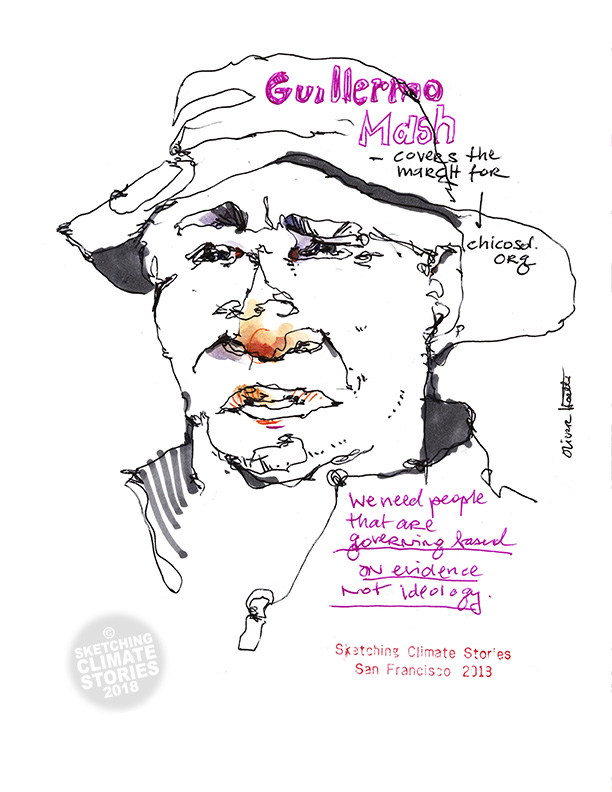 Guillermo
Mash
- covers the
march for
chicosol.
org
We need people
that are
governing based
on evidence
not ideology.
Sketching Climate Stories
San Francisco 2018
©
SKETCHING
CLIMATE
STORIES
2018